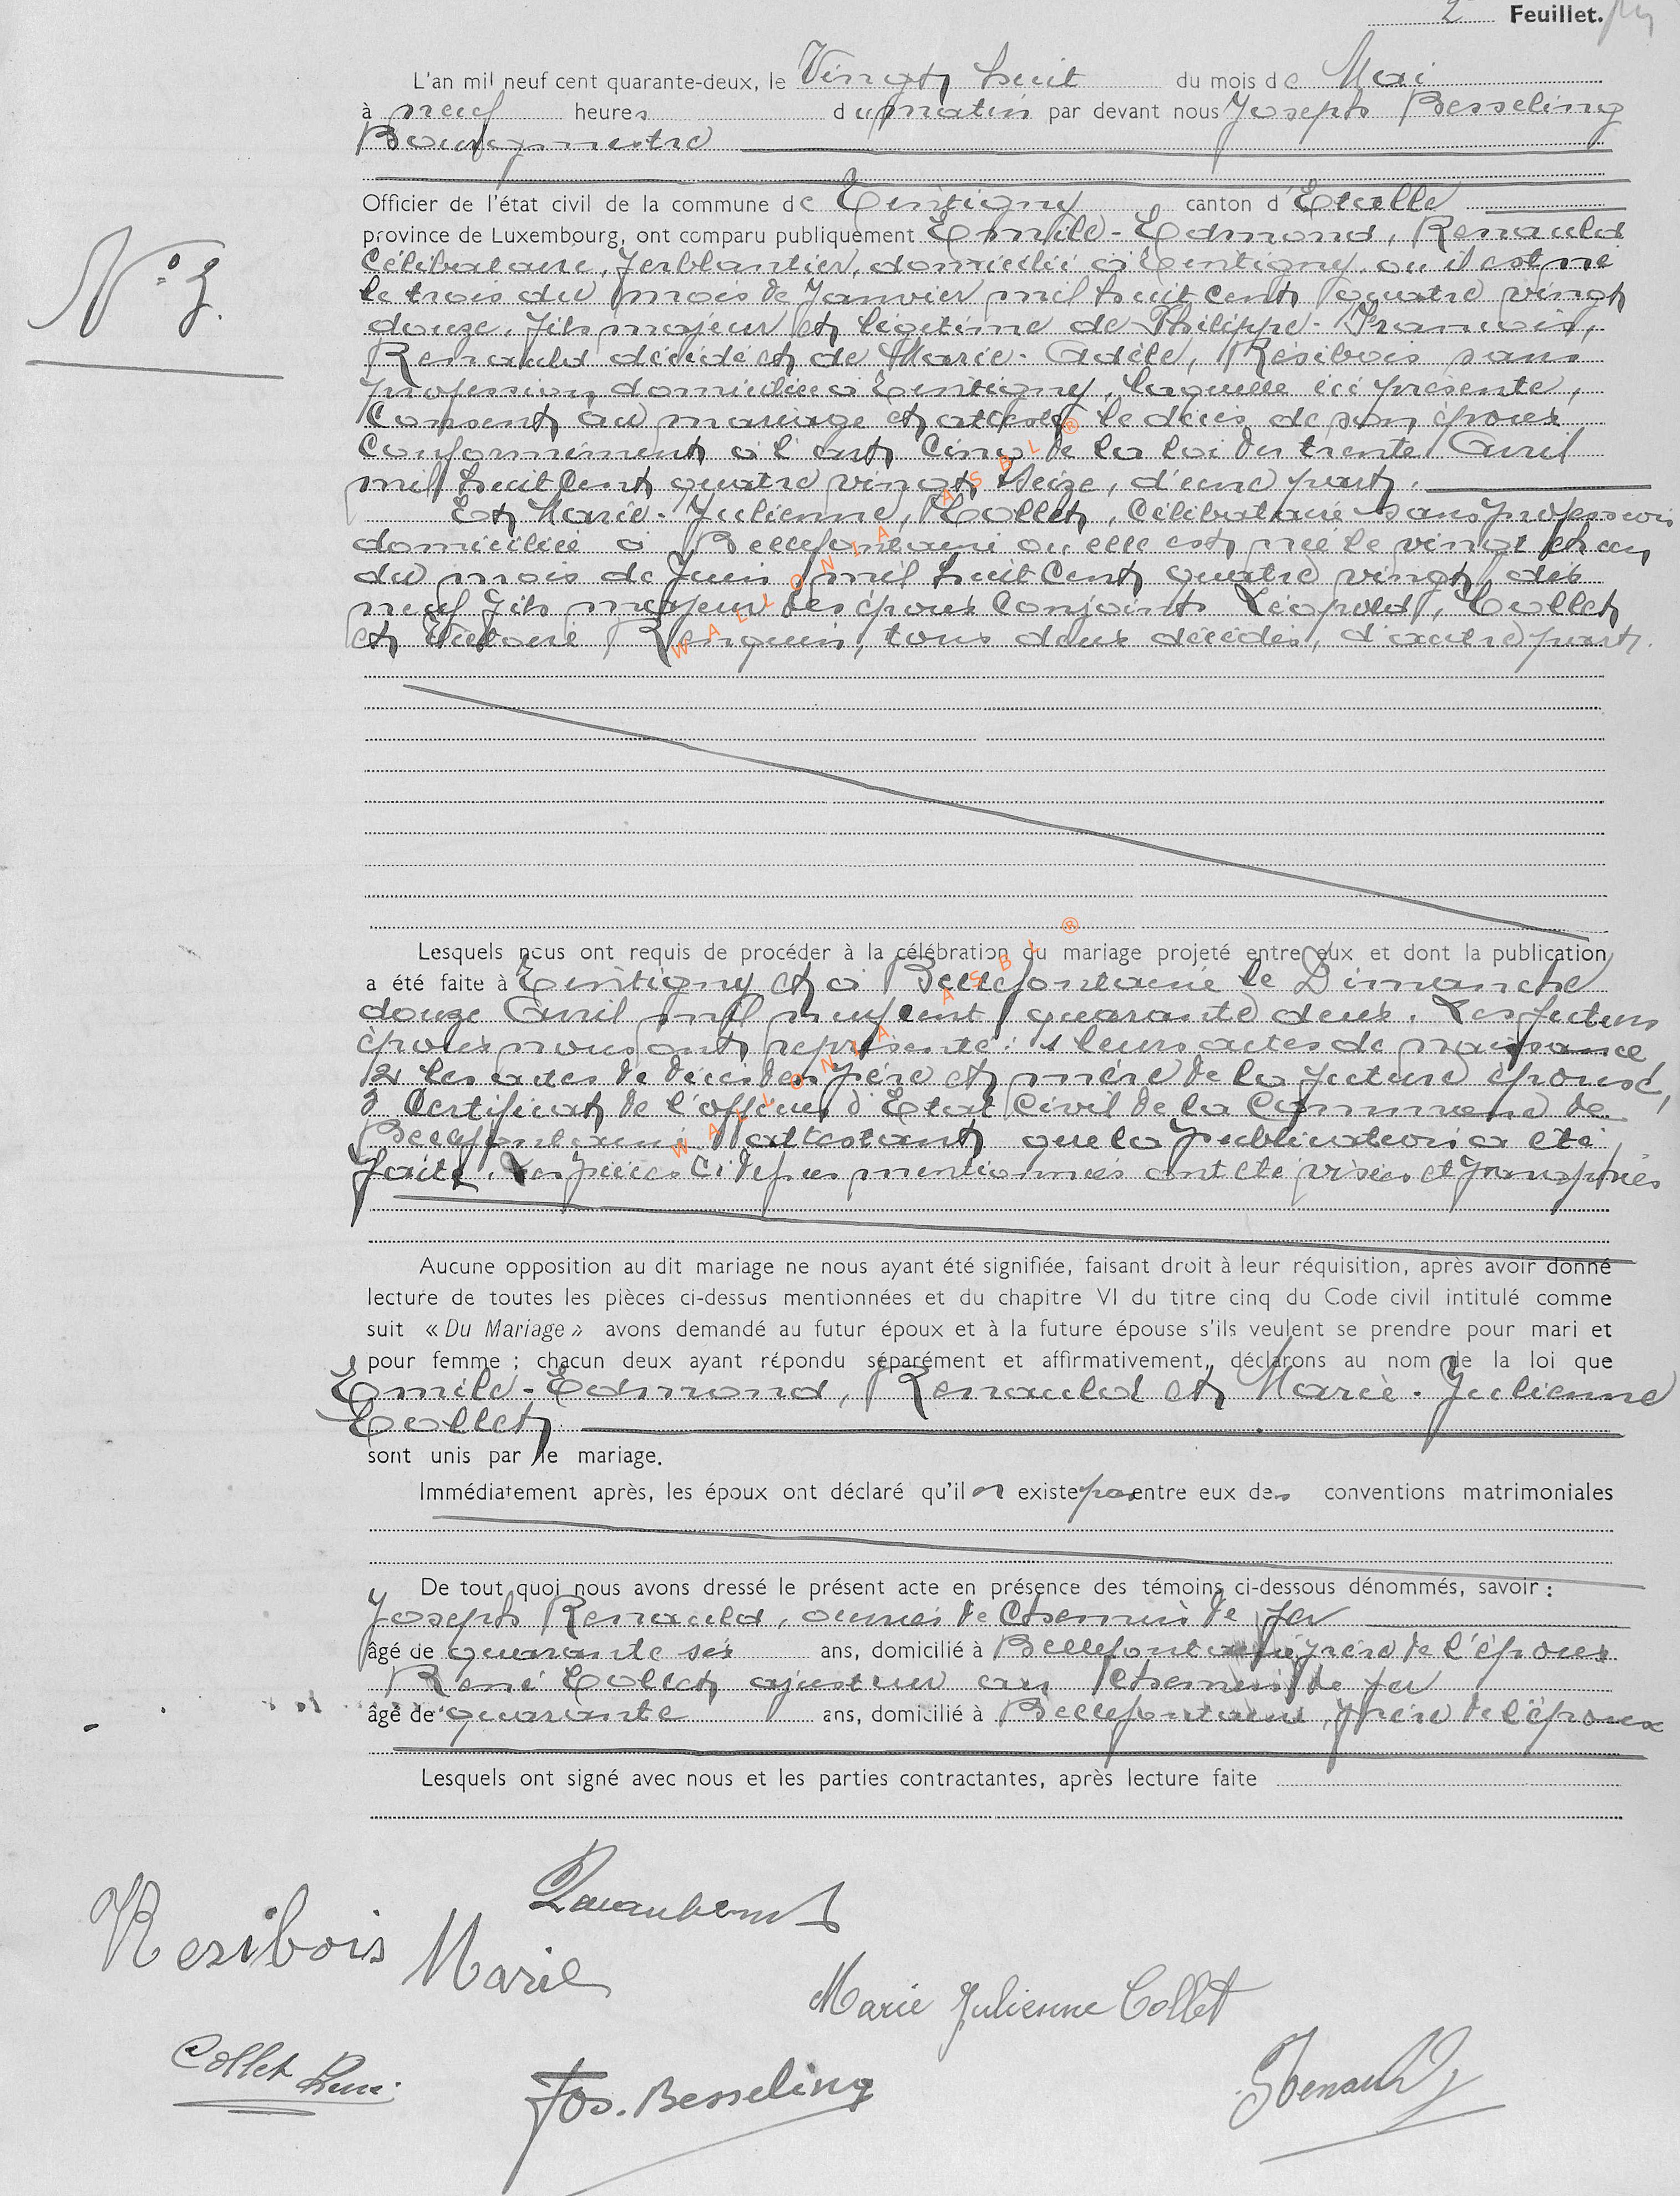 2 Feuillet.
L'an mil neuf cent quarante-deux, le Vingt huit du mois de Mai
à neuf heures du matin par devant nous Joseph Besseling
Bourgmestre
Officier de l'état civil de la commune de Tintigny canton d'Etalle
province de Luxembourg, ont comparu publiquement Emile-Edmond, Renauld
Célibataire, ferblantier, domicilié à Tintigny, ou il est né
le trois du mois de Janvier mil huit cent quatre vingt
douze, fils majeur et légitime de Philippe-François,
Renauld décédé et de Marie-Adèle, Résibois sans
profession, domiciliée à Tintigny, laquelle ici présente,
Consent au mariage et atteste le décès de son époux
Conformément à l'art Cinq de la loi du trente Avril
mil huit Cent quatre vingt Seize, d'une part.
Et Marie-Julienne, Collet, Célibataire sans profession
domiciliée à Bellefontaine ou elle est née le vingt et un
du mois de Juin mil huit Cent quatre vingt dix
neuf fils majeur des époux Conjoints Léopold, Collet
et Victoire, tous deux décédés, d'autre part.
Nº 3.
Lesquels nous ont requis de procéder à la célébration du mariage projeté entre eux et dont la publication
a été faite à Tintigny et à Bellefontaine le Dimanche
douze Avril mil neuf cent quarante deux. Les futurs
époux nous ont représenté: 1 leurs actes de naissance
2 les actes de décès des père et mère de la future épouse,
3 Certificat de l'officier d'Etat Civil de la Commune de
Bellefontaine attestant que la publication a été
faite. Les pièces Ci dessus mentionnées ont été visées et paraphées
Aucune opposition au dit mariage ne nous ayant été signifiée, faisant droit à leur réquisition, après avoir donné
lecture de toutes les pièces ci-dessus mentionnées et du chapitre VI du titre cinq du Code civil intitulé comme
suit « Du Mariage » avons demandé au futur époux et à la future épouse s'ils veulent se prendre pour mari et
pour femme ; chacun deux ayant répondu séparément et affirmativement, déclarons au nom de la loi que
Emile-Edmond, Renauld et Marie-Julienne
Collet
sont unis par le mariage.
Immédiatement après, les époux ont déclaré qu'il n existe pas entre eux des conventions matrimoniales
De tout quoi nous avons dressé le présent acte en présence des témoins ci-dessous dénommés, savoir :
Joseph Renauld, ouvrier de Chemin de fer
âgé de quarante six ans, domicilié à Bellefontaine, frère de l'époux
René Collet ajusteur au Chemin de fer
âgé de quarante ans, domicilié à Bellefontaine, frère de l'épouse
Lesquels ont signé avec nous et les parties contractantes, après lecture faite
Resibois Marie
Marie Julienne Collet
Collet René
Jos. Besseling
JRenauld
WALLONIA ASBL ®
WALLONIA ASBL ®